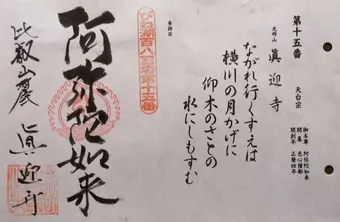 第十五番
光明山
眞迎寺
天台宗
御本尊 阿弥陀如来
開基 恵心僧都
開創年 正暦四年
ながれ行くすえは
横川の月かげに
仰木のさとの
水にしもすむ
奉拝
びわ湖百八霊場第十五番
阿弥陀如来
比叡山麓
眞迎寺